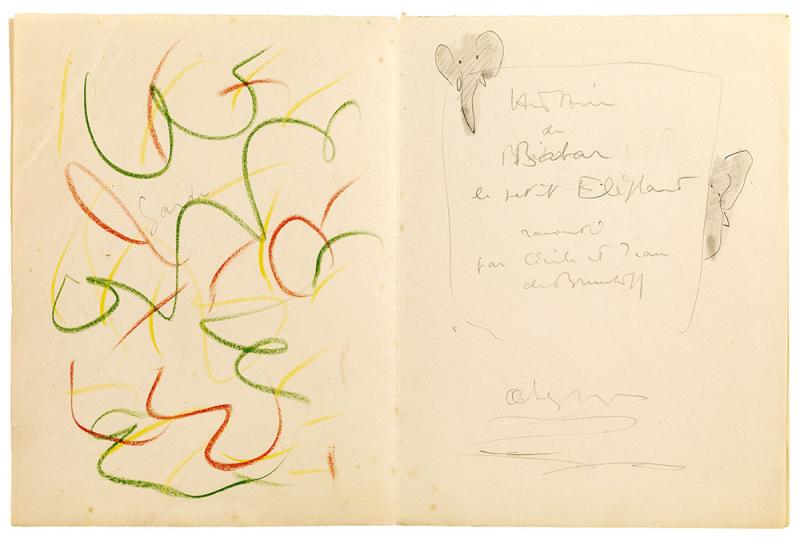 Garde
Histoire
de
Babar
le petit Eléphant
raconté
par Cécile et Jean
de Brunhoff